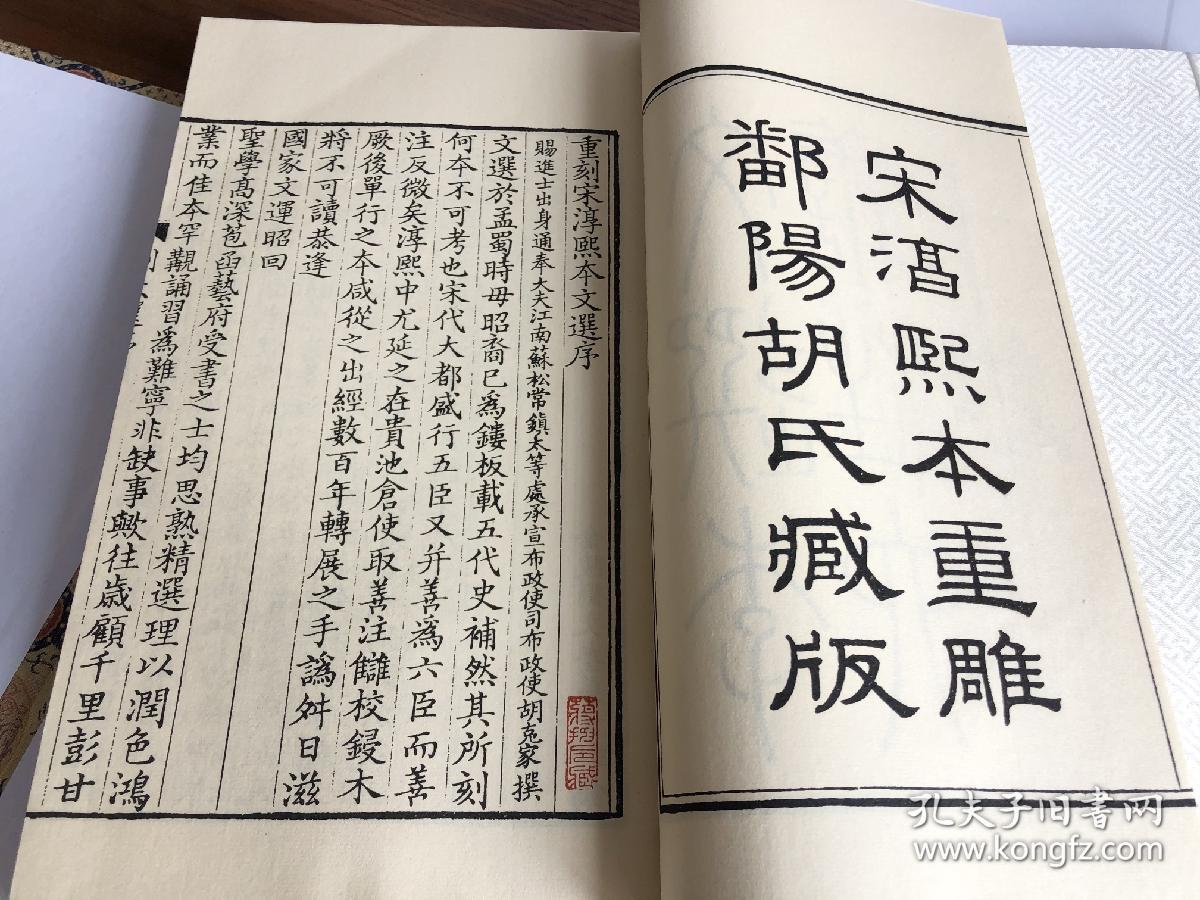 宋淳熙本重雕
鄱陽胡氏臧版
重刻宋淳熙本文選序
賜進士出身通奉大夫江南蘇松常鎮太等處承宣布政使司布政使胡克家撰
文選於孟蜀時毋昭裔已為鏤板載五代史補然其所刻
何本不可考也宋代大都盛行五臣又并善為六臣而善
注反微矣淳熙中尤延之在貴池倉使取善注讎校鋟木
厥後單行之本咸從之出經數百年轉展之手譌舛日滋
將不可讀恭逢
國家文運昭回
聖學高深苞函藝府受書之士均思熟精選理以潤色鴻
業而佳本罕覯誦習為難寧非缺事歟往歲顧千里彭甘
孔夫子旧书网
www.kongfz.com